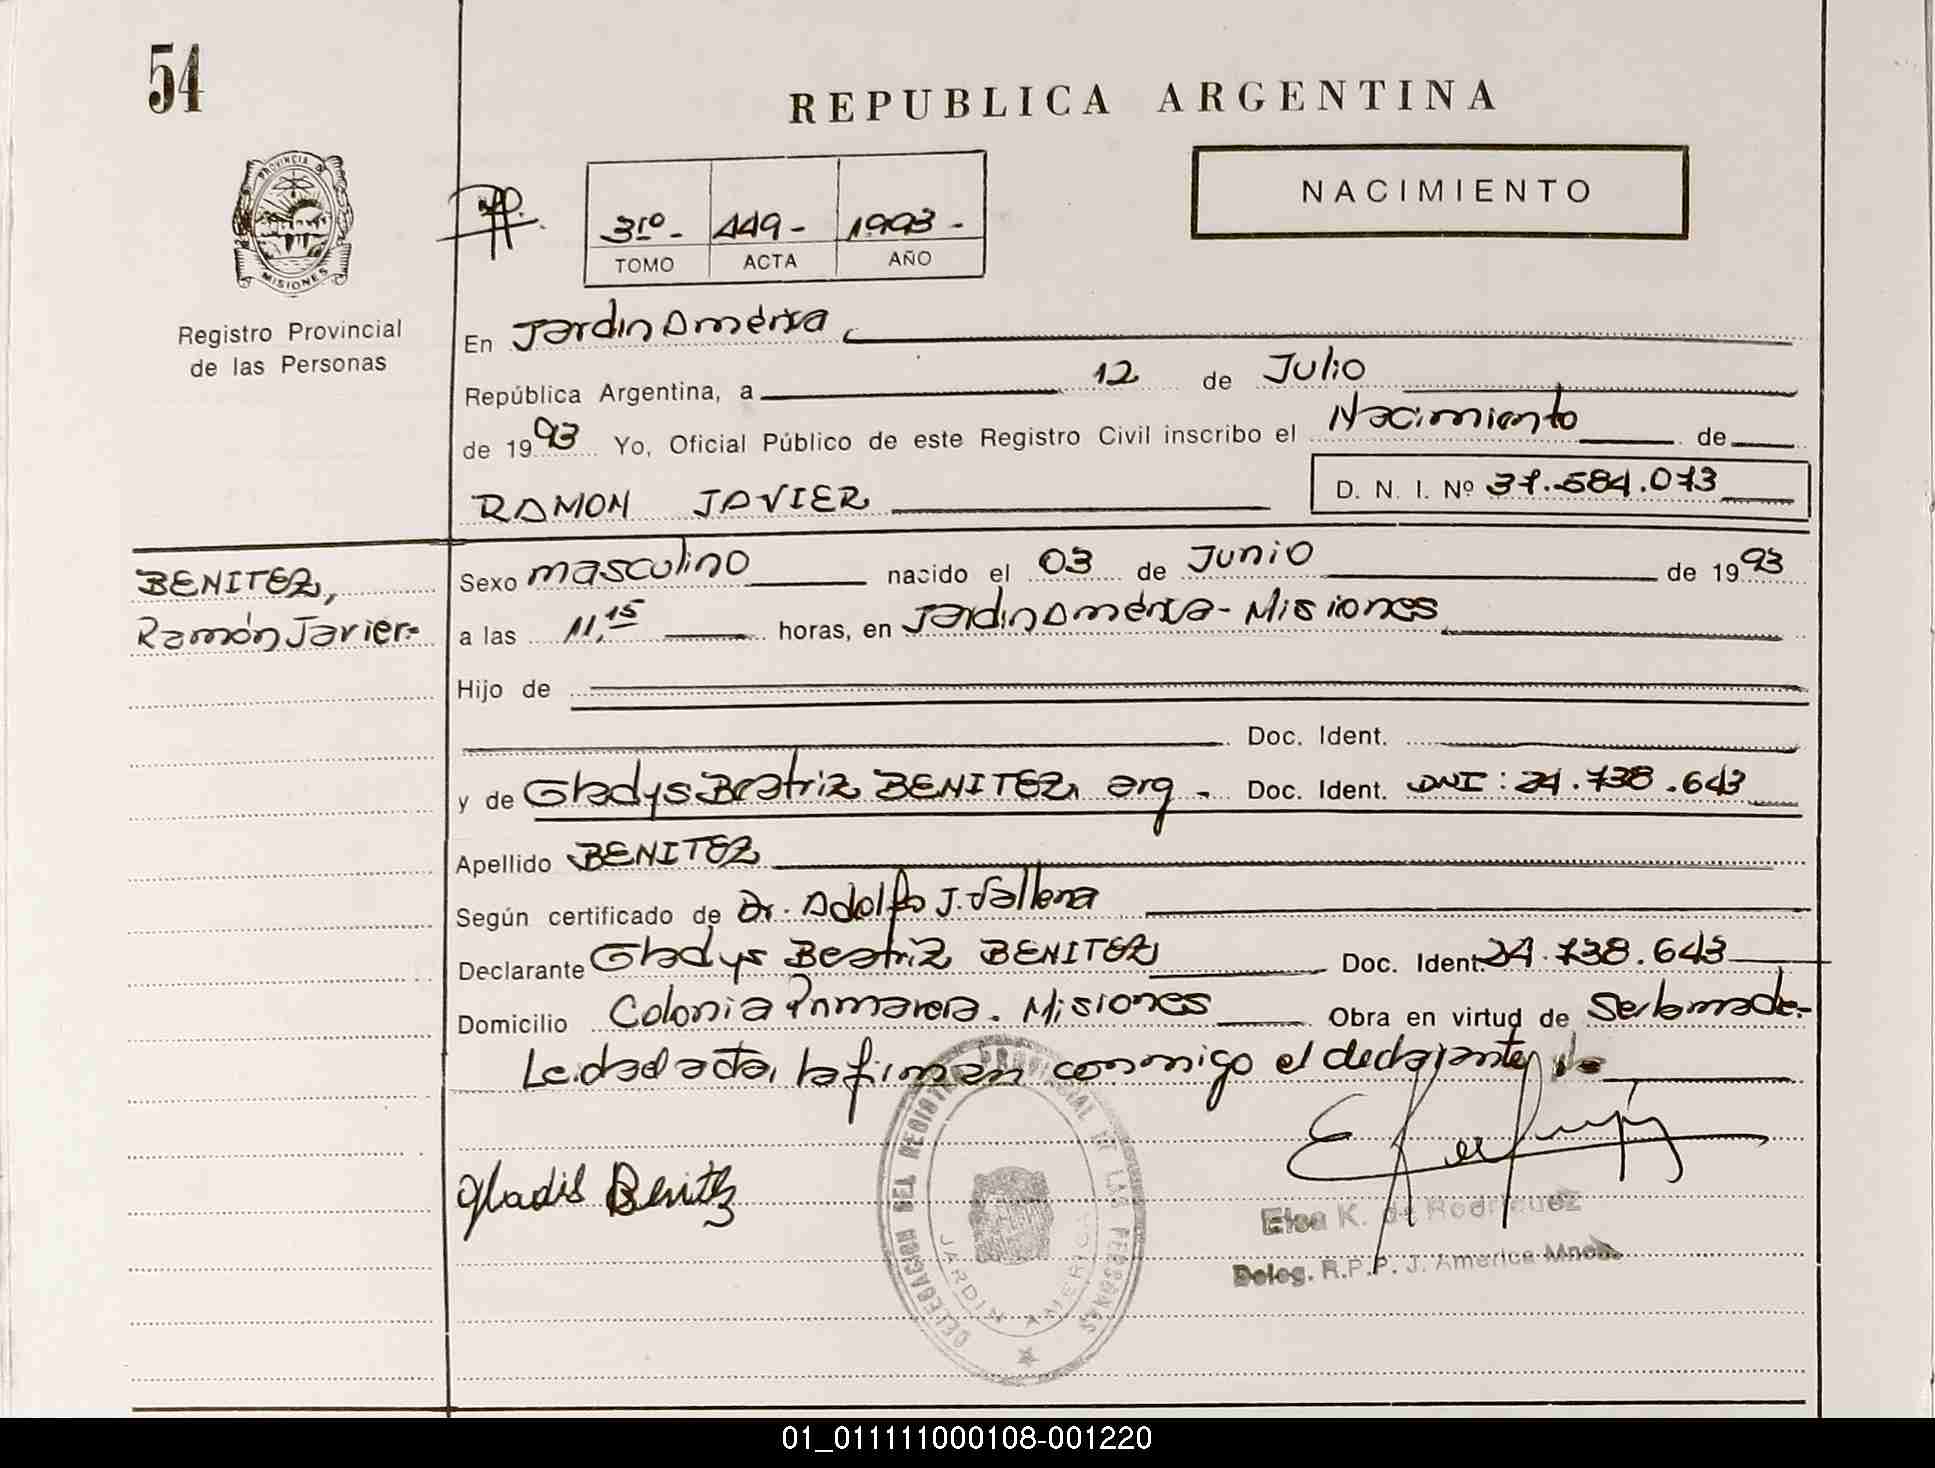 54
REPUBLICA ARGENTINA
PROVINCIA DE
MISIONES
Registro Provincial
de las Personas
3ro - 449 - 1993 -
TOMO ACTA AÑO
NACIMIENTO
En Jardin América,
República Argentina, a 12 de Julio
de 1993 Yo, Oficial Público de este Registro Civil inscribo el Nacimiento de
RAMON JAVIER D. N. I. Nº 37.584.073
BENITEZ,
Ramón Javier.-
Sexo masculino nacido el 03 de Junio de 1993
a las 11,15 horas, en Jardin América - Misiones
Hijo de
Doc. Ident.
y de Gladys Beatriz BENITEZ, arg. Doc. Ident. DNI: 24.738.643
Apellido BENITEZ
Según certificado de Dr. Adolfo J.
Declarante Gladys Beatriz BENITEZ Doc. Ident. 24.738.643
Domicilio Colonia Primavera. Misiones Obra en virtud de Ser la madre.-
Leida el acta, la firman conmigo el declarante
Gladis Benitez
DELEGACION DEL REGISTRO PROVINCIAL DE LAS PERSONAS
JARDIN AMERICA
Elsa K. de Rodriguez
Deleg. R.P.P. J. America Mnes.
01_011111000108-001220